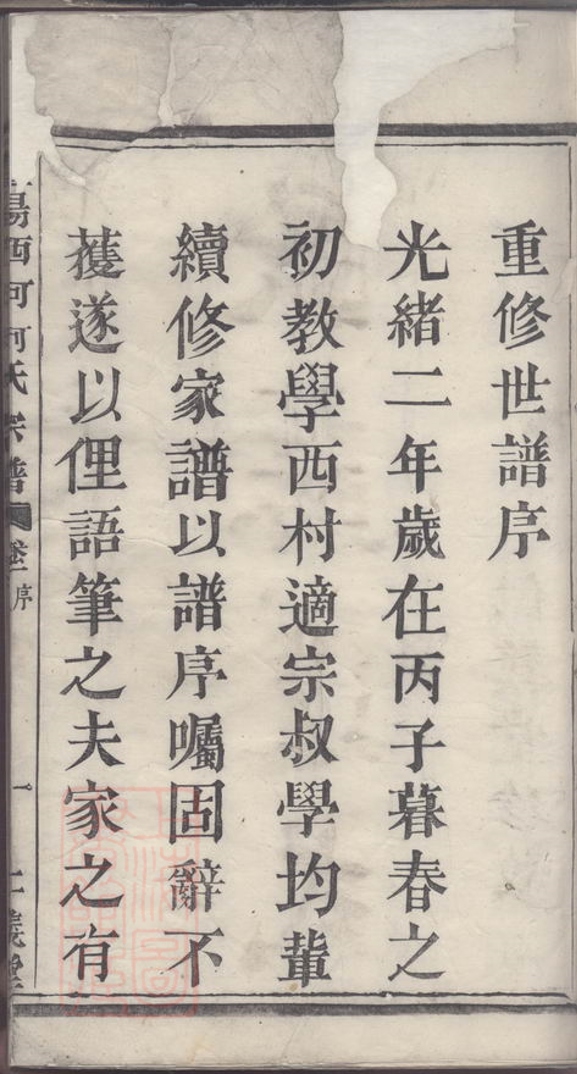 重修世譜序
光緒二年歲在丙子暮春之
初教學西村適宗叔學均輩
續修家譜以譜序囑固辭不
蒦遂以俚語筆之夫家之有
西河何氏宗譜 卷 序 一 義堂